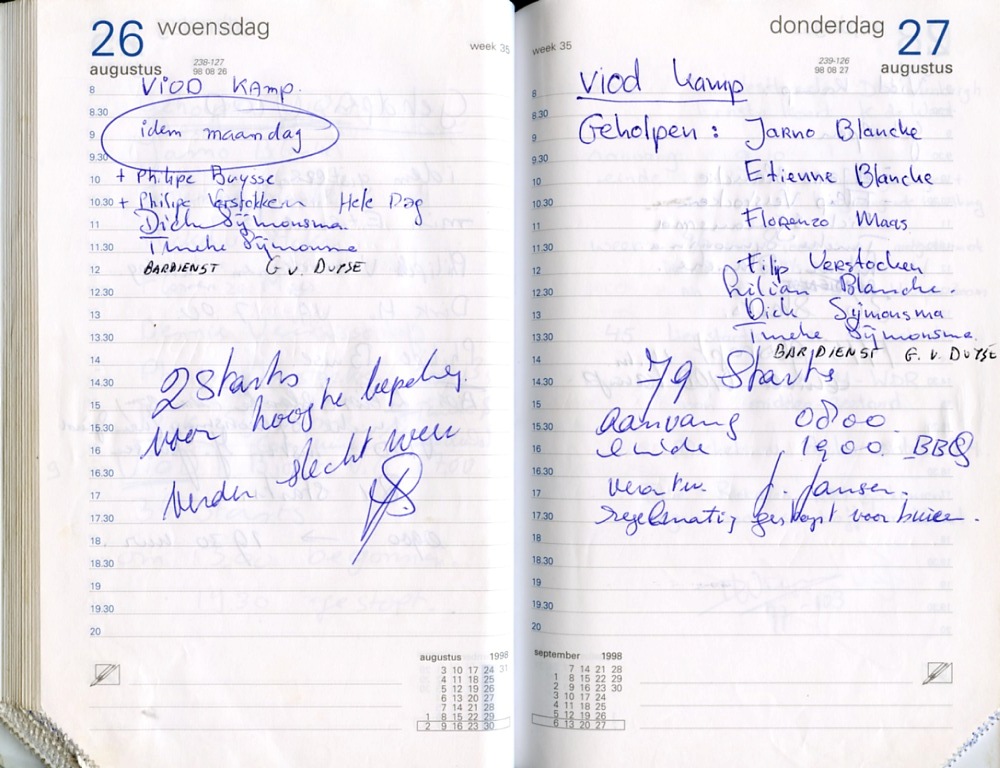 26 woensdag
augustus
239-127
98 08 26
week 35
8 VIOD KAMP.
8.30
9 idem maandag
9.30
10 + Philipe Buysse
10.30 + Philipe Verstokken Hele Dag
11 Dick Sijmonsma
11.30 Tineke Sijmonsma
12 BARDIENST G v. DUYSE
12.30
13
13.30
14
14.30 2 Starts
15 voor hoogte bepaling.
15.30
16 verder slecht weer
16.30
17
17.30
18
18.30
19
19.30
20
augustus 1998
3 10 17 24 31
4 11 18 25
5 12 19 26
6 13 20 27
7 14 21 28
1 8 15 22 29
2 9 16 23 30
donderdag 27
augustus
239-126
98 08 27
week 35
8 Viod kamp
8.30
9 Geholpen : Jarno Blancke
9.30
10 Etienne Blancke
10.30
11 Florenzo Maas
11.30
12 Filip Verstocken
12.30 Lilian Blancke.
13 Dick Sijmonsma
13.30 Tineke Sijmonsma.
14 BARDIENST G. v. DUYSE
14.30 79 Starts
15
15.30 aanvang 0800.
16 einde 1900. BBQ
16.30
17 verantw. J. Jansen.
17.30 regelmatig gestopt voor buien.
18
18.30
19
19.30
20
september 1998
7 14 21 28
1 8 15 22 29
2 9 16 23 30
3 10 17 24
4 11 18 25
5 12 19 26
6 13 20 27